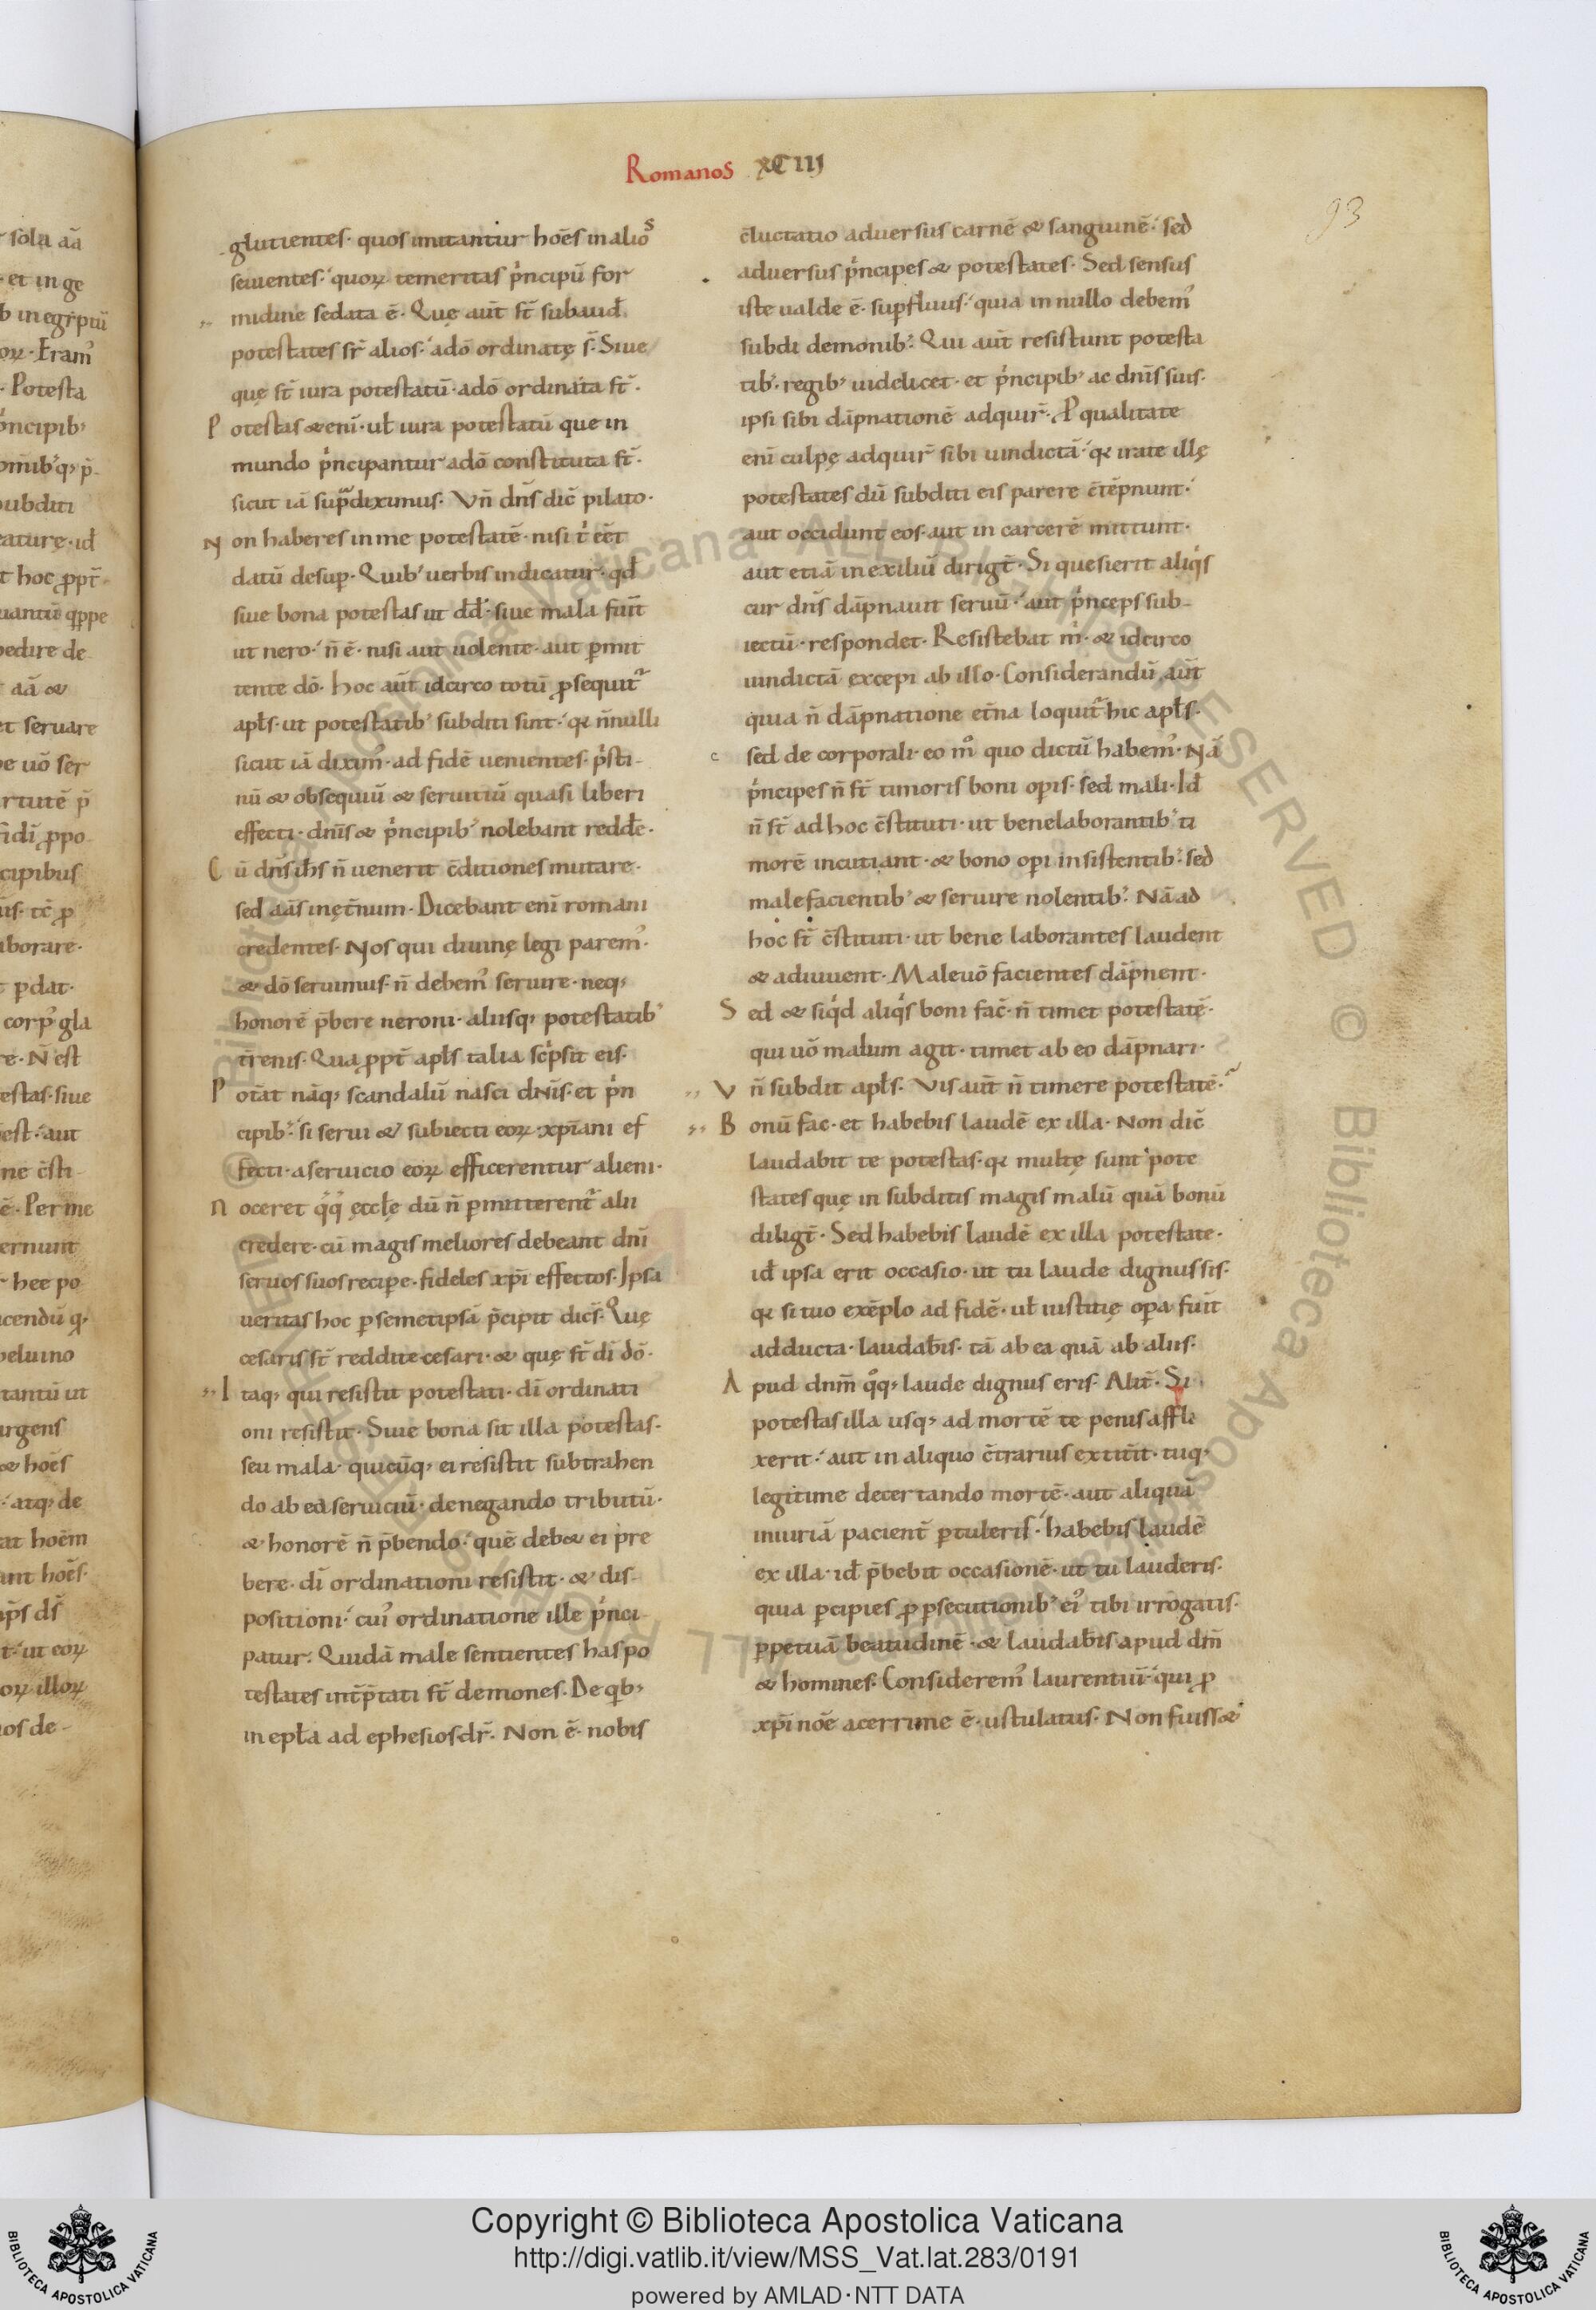 Romanos XCIII
93
glutientes· quos imitantur hoēs in alios
seuientes· quoꝝ temeritas pͥncipū for
midine sedata ē· Quę aūt st̄ subaud̄
potestates sr̄ alios· adō ordinatę s̄· Siue
quę st̄ iura potestatū· adō ordinata st̄·
Potestas & eni· ul̄ iura potestatū que in
mundo pͥncipantur adō constituta st̄·
sicut iā sup̄ diximus· Vn̄ dn̄s dic̄ pilato·
Non haberes in me potestatē· nisi tͥ eēt
datū desup̄· Quibꝰ uerbis indicatur· qd̄
siue bona potestas ut dd̄· siue mala fuit̄
ut nero· n̄ ē· nisi aut uolente· aut ꝑmit
tente dō· Hoc aūt idcirco totū ꝓsequit᷑
apl̄s· ut potestatibꝰ subditi sint· qꝛ n̄nulli
sicut iā diximꝰ· ad fidē uenientes· pͥsti-
nū & obsequiū & seruitiū quasi liberi
effecti· dn̄is & pͥncipibꝰ nolebant redd̄e·
Cū dn̄s ih̄s n̄ uenerit c̄ditiones mutare·
sed aās inęt̄num· Dicebant eni romani
credentes· Nos qui diuinę legi paremꝰ·
& dō seruimus· n̄ debemꝰ seruire· neqꝫ
honorē p̄bere neroni· aliisqꝫ potestatibꝰ
t̄renis· Qua ꝓpt̄ apl̄s talia scͥpsit eis·
Pot̄at nāqꝫ scandalū nasci dn̄is· et pͥn
cipibꝰ· si serui & subiecti eoꝝ· xp̄iani ef
fecti· a seruicio eoꝝ efficerentur alieni·
Noceret qͦqͥ ęccl̄ę dū n̄ ꝑmitterent᷑ alii
credere· cū magis meliores debeant dn̄i
seruos suos recipe· fideles xp̄i effectos· Ipsa
ueritas hoc ꝑ semetipsā p̄cipit dic̄s· Quę
cesaris st̄ reddite cesari· & quę st̄ dī dō·
Itaqꝫ qui resistit potestati· dī ordinati
oni resistit· Siue bona sit illa potestas·
seu mala· quicūqꝫ ei resistit subtrahen
do ab ea seruiciū· denegando tributū·
& honorē n̄ p̄bendo· quē deb& ei pre
bere· dī ordinationi resistit· & dis-
positioni· cuiꝰ ordinatione ille pͥnci
patur· Quidā male sentientes has po
testates int̄p̄tati st̄ demones· De qͥbꝫ
in epl̄a ad ephesios dr̄· Non ē· nobis
c̄luctatio aduersus carnē & sanguinē· sed
aduersus pͥncipes & potestates· Sed sensus
iste ualde ē· suꝑfluus· quia in nullo debemꝰ
subdi demonibꝰ· Qui aūt resistunt potesta
tibꝰ· regibꝰ uidelicet· et pͥncipibꝰ ac dn̄is suis·
ipsi sibi dāpnationē adquir̄· Ꝓ qualitate
eni culpę adquir̄ sibi uindictā· qꝛ irate illę
potestates dū subditi eis parere c̄tēpnunt·
aut occidunt eos· aut in carcerē mittunt·
aut etiā in exiliū dirigt̄· Si quesierit aliqͥs
cur dn̄s dāpnauit seruū· aut pͥnceps sub-
iectū· respondet· Resistebat mͥ· & idcirco
uindictā excepi ab illo· Considerandū aūt
quia n̄ dāpnatione et̄na loquit᷑ hic apl̄s·
sed de corporali· eo mͦ quo dictū habemꝰ· Nā
pͥncipes n̄ st̄ timoris boni opis· sed mali· Id̄
n̄ st̄ ad hoc c̄stituti· ut bene laborantibꝰ ti
morē incutiant· & bono opi insistentibꝰ· sed
male facientibꝰ & seruire nolentibꝰ· Nā ad
hoc st̄ c̄stituti· ut bene laborantes laudent
& adiuuent· Male uō facientes dāpnent·
Sed & siqͥd aliqͥs boni fac̄· n̄ timet potestatē·
qui uō malum agit· timet ab eo dāpnari·
Vn̄ subdit apl̄s· Vis aūt n̄ timere potestatē·
Bonū fac· et habebis laudē ex illa· Non dic̄
laudabit te potestas· qꝛ multę sunt pote
states quę in subditis magis malū quā bonū
diligt̄· Sed habebis laudē ex illa potestate·
id̄ ipsa erit occasio· ut tu laude dignus sis·
qꝛ si tuo exēplo ad fidē· ul̄ iustitię opa fuit̄
adducta· laudab̄is· tā ab ea quā ab aliis·
Apud dnm̄ qͦqꝫ laude dignus eris· Alit̄· Si
potestas illa usqꝫ ad mortē te penis affli
xerit· aut in aliquo c̄trarius extitit̄· tuqꝫ
legitime decertando mortē· aut aliquā
iniuriā pacient̄ ꝑtuleris· habebis laudē
ex illa· id̄ p̄bebit occasionē· ut tu lauderis·
quia ꝑcipies ꝓ ꝑsecutionibꝰ eiꝰ tibi irrogatis·
ꝑpetuā beatudinē· & laudab̄is apud dm̄
& homines· Consideremꝰ laurentiū· qui ꝓ
xp̄i noē acerrime ē· ustulatus· Non fuiss&
Copyright © Biblioteca Apostolica Vaticana
http://digi.vatlib.it/view/MSS_Vat.lat.283/0191
powered by AMLAD·NTT DATA